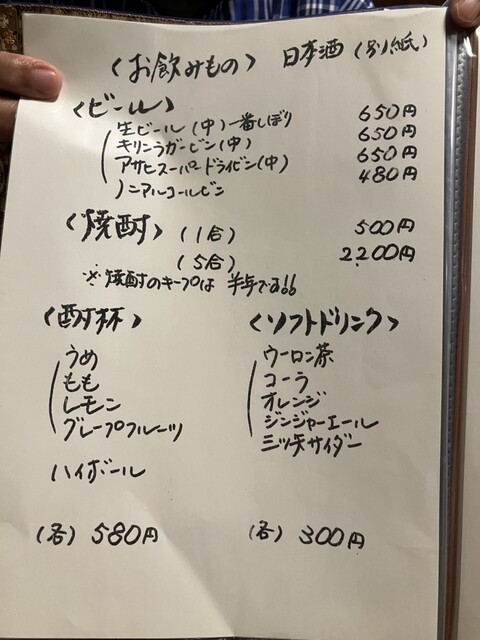 〈お飲みもの〉 日本酒 (別紙)
〈ビール〉
生ビール (中) 一番しぼり 650円
キリンラガービン (中) 650円
アサヒスーパードライビン (中) 650円
ノンアルコールビン 480円
〈焼酎〉 (1合) 500円
(5合) 2,200円
※焼酎のキープは 半年です!!
〈酎杯〉
うめ
もも
レモン
グレープフルーツ
ハイボール
(各) 580円
〈ソフトドリンク〉
ウーロン茶
コーラ
オレンジ
ジンジャーエール
三ツ矢サイダー
(各) 300円